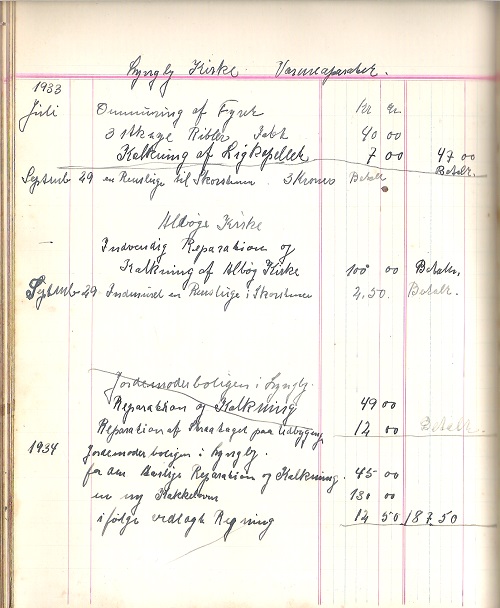 Lyngby Kirke Varmeaparatet.
1933
Juli Ommuring af Fyret Kr Ør
3 stkage Ribber Tabt 40 00
Kalkning af Ligkapellet 7 00 47 00
Betalt.
Septemb 29 en Renslige til Skorstenen 3 Kroner Betalt
Albøge Kirke
Indvendig Reparation og
Kalkning af Albøg Kirke 100 00 Betalt.
Septemb 29 Indmuret en Renslige i Skorstenen 2,50. Betalt.
Jordemoderboligen i Lyngby.
Reparation og Kalkning 49 00
Reparation af Straataget paa Udbygning 12 00 Betalt
1934 Jordemoderboligen i Lyngby.
for den aarlige Reparation og Kalkning. 45 00
en ny Kakkelovn 130 00
ifølge vedlagt Regning 12 50 187 50